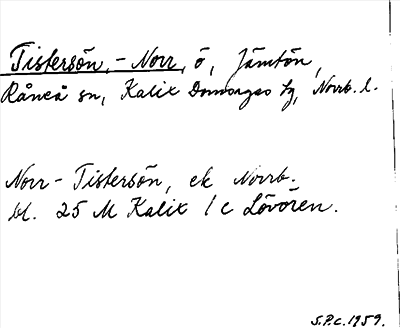 Tistersön, - Norr, ö, Jämtön,
Råneå sn, Kalix Domsagas tg, Norrb. l.
Norr-Tistersön, ek Norrb.
bl. 25 M Kalix / c Lövören.
S.P.c. 1959.